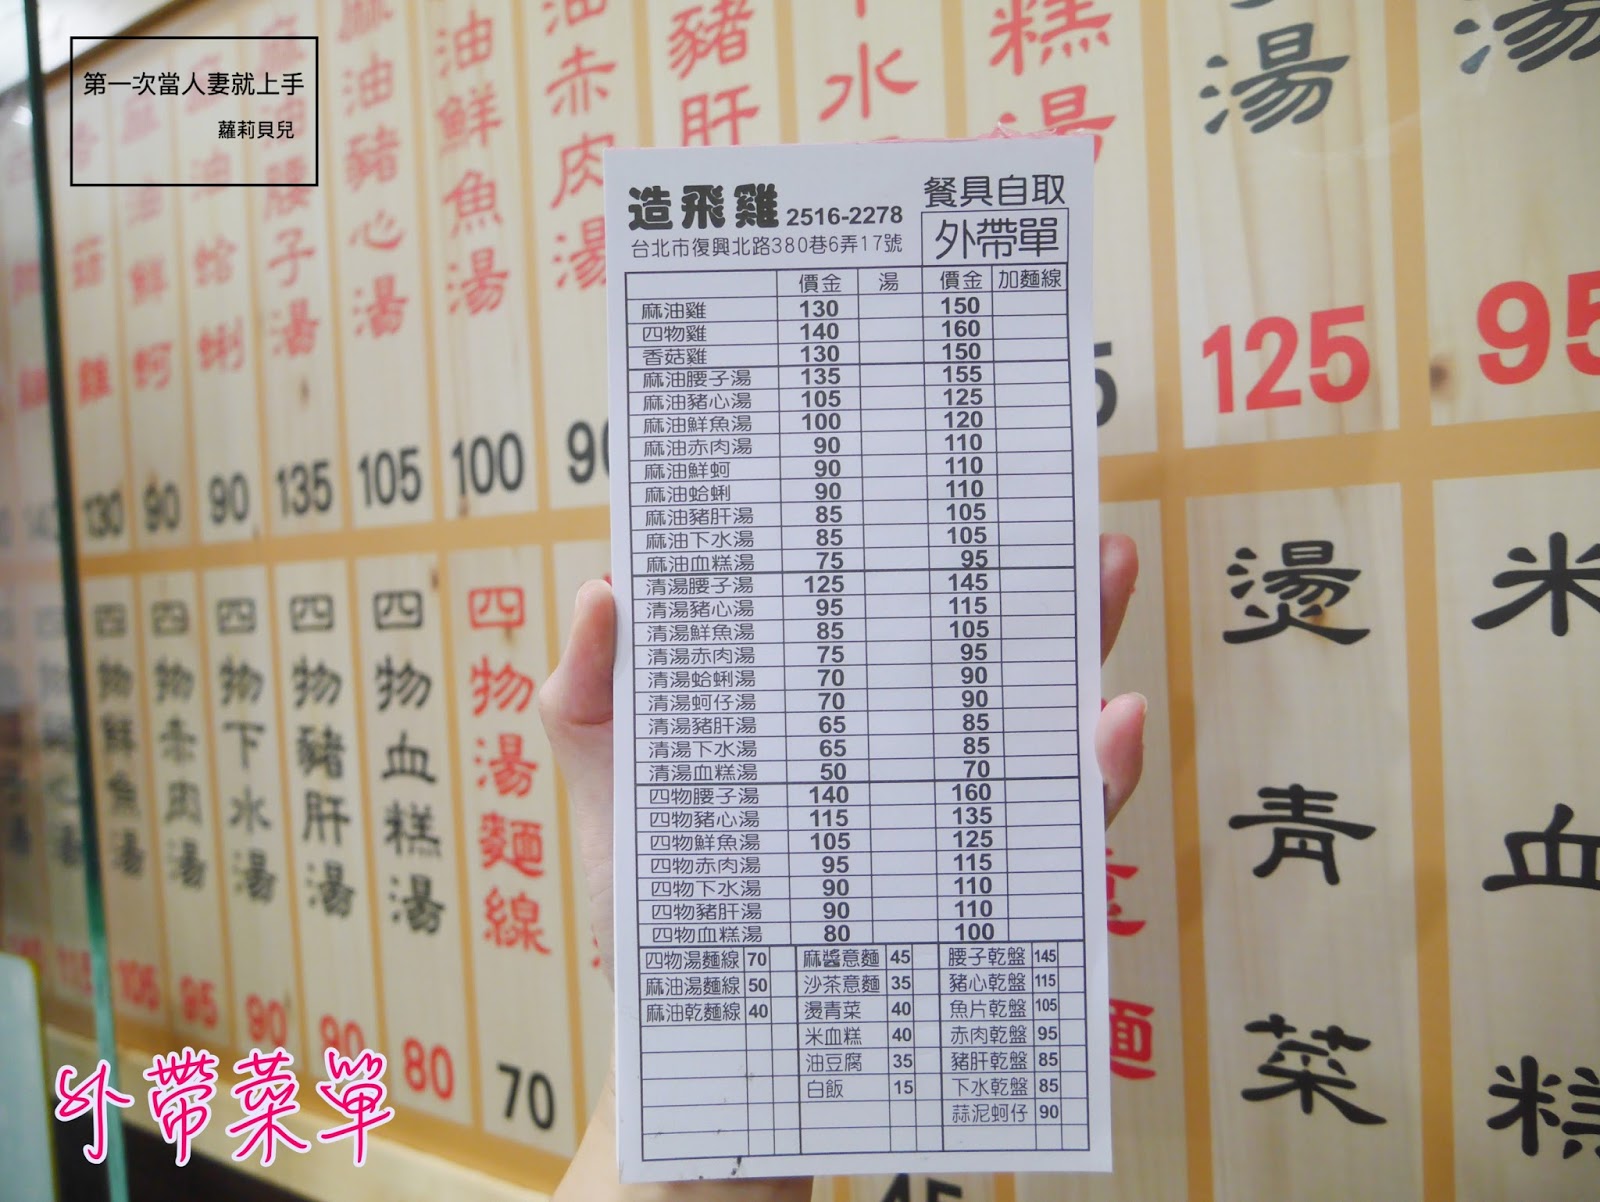 第一次當人妻就上手
蘿莉貝兒
造飛雞 2516-2278 餐具自取
台北市復興北路380巷6弄17號 外帶單
價金 湯 價金 加麵線
麻油雞 130 150
四物雞 140 160
香菇雞 130 150
麻油腰子湯 135 155
麻油豬心湯 105 125
麻油鮮魚湯 100 120
麻油赤肉湯 90 110
麻油鮮蚵 90 110
麻油蛤蜊 90 110
麻油豬肝湯 85 105
麻油下水湯 85 105
麻油血糕湯 75 95
清湯腰子湯 125 145
清湯豬心湯 95 115
清湯鮮魚湯 85 105
清湯赤肉湯 75 95
清湯蛤蜊湯 70 90
清湯蚵仔湯 70 90
清湯豬肝湯 65 85
清湯下水湯 65 85
清湯血糕湯 50 70
四物腰子湯 140 160
四物豬心湯 115 135
四物鮮魚湯 105 125
四物赤肉湯 95 115
四物下水湯 90 110
四物豬肝湯 90 110
四物血糕湯 80 100
四物湯麵線 70 麻醬意麵 45 腰子乾盤 145
麻油湯麵線 50 沙茶意麵 35 豬心乾盤 115
麻油乾麵線 40 燙青菜 40 魚片乾盤 105
米血糕 40 赤肉乾盤 95
油豆腐 35 豬肝乾盤 85
白飯 15 下水乾盤 85
蒜泥蚵仔 90
菇雞 130
油鮮蚵 90
油蛤蜊 90
腰子湯 135
麻油豬心湯 105
油鮮魚湯 100
油赤肉湯 90
豬肝
水
糕湯
湯 125
湯 95
四物鮮魚湯 105
四物赤肉湯 95
四物下水湯 90
四物豬肝湯 90
四物血糕湯 80
四物湯麵線 70
意麵
燙青菜
米血糕
45
外帶菜單